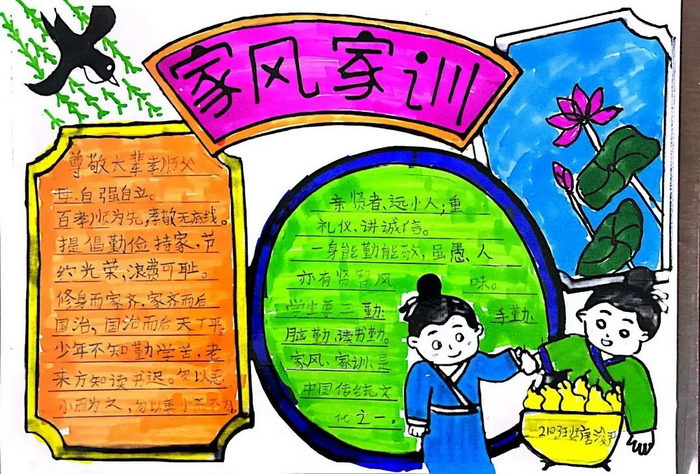 家风家训
尊敬大辈孝顺父
母,自强自立。
百孝顺为先,孝敬无底线。
提倡勤俭持家,节
约光荣,浪费可耻。
修身而家齐,家齐而后
国治,国治而后天下平。
少年不知勤学苦,老
来方知读书迟。勿以恶
小而为之,勿以善小而不为。
亲贤者,远小人;重
礼仪,讲诚信。
一身能勤能敬,虽愚人
亦有贤智风味。
学生要三勤 手勤
脑勤、读书勤。
家风、家训是
中国传统文
化之一。
210班 唐